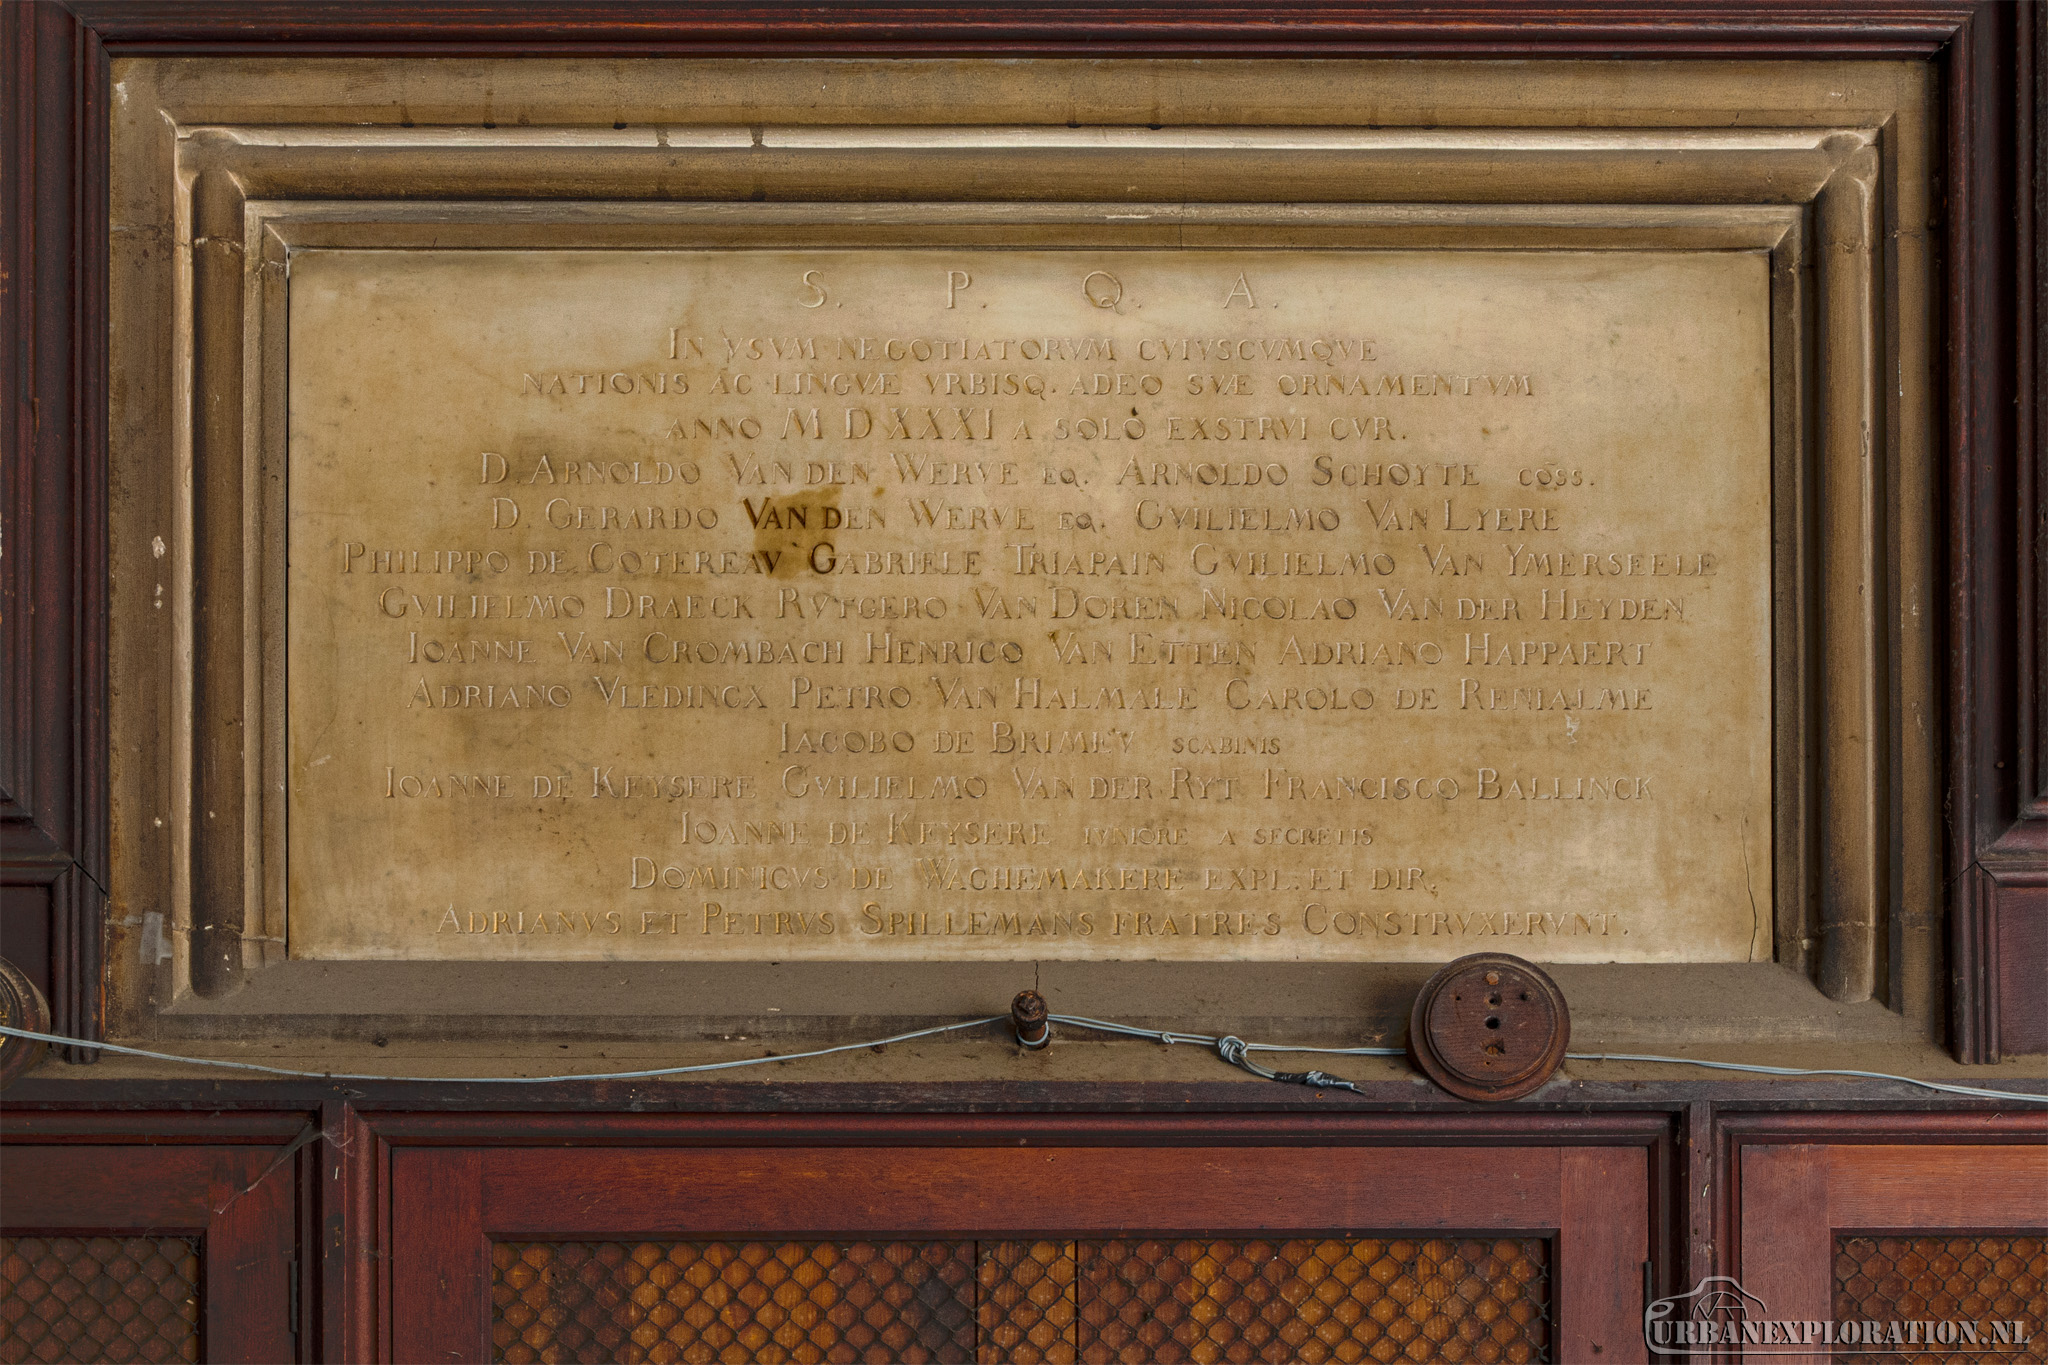 S. P. Q. A.
IN VSVM NEGOTIATORVM CVIVSCVMQVE
NATIONIS AC LINGVÆ VRBISQ. ADEO SVÆ ORNAMENTVM
ANNO M D XXXI A SOLO EXSTRVI CVR.
D. ARNOLDO VAN DEN WERVE EQ. ARNOLDO SCHOYTE COSS.
D. GERARDO VAN DEN WERVE EQ. GVILIELMO VAN LYERE
PHILIPPO DE COTEREAV GABRIELE TRIAPAIN GVILIELMO VAN YMERSEELE
GVILIELMO DRAECK RVTGERO VAN DOREN NICOLAO VAN DER HEYDEN
IOANNE VAN CROMBACH HENRICO VAN ETTEN ADRIANO HAPPAERT
ADRIANO VLEDINCX PETRO VAN HALMALE CAROLO DE RENIALME
IACOBO DE BRIMEV SCABINIS
IOANNE DE KEYSERE GVILIELMO VAN DER RYT FRANCISCO BALLINCK
IOANNE DE KEYSERE IVNIORE A SECRETIS
DOMINICVS DE WAGHEMAKERE EXPL. ET DIR.
ADRIANVS ET PETRVS SPILLEMANS FRATRES CONSTRVXERVNT.
URBANEXPLORATION.NL